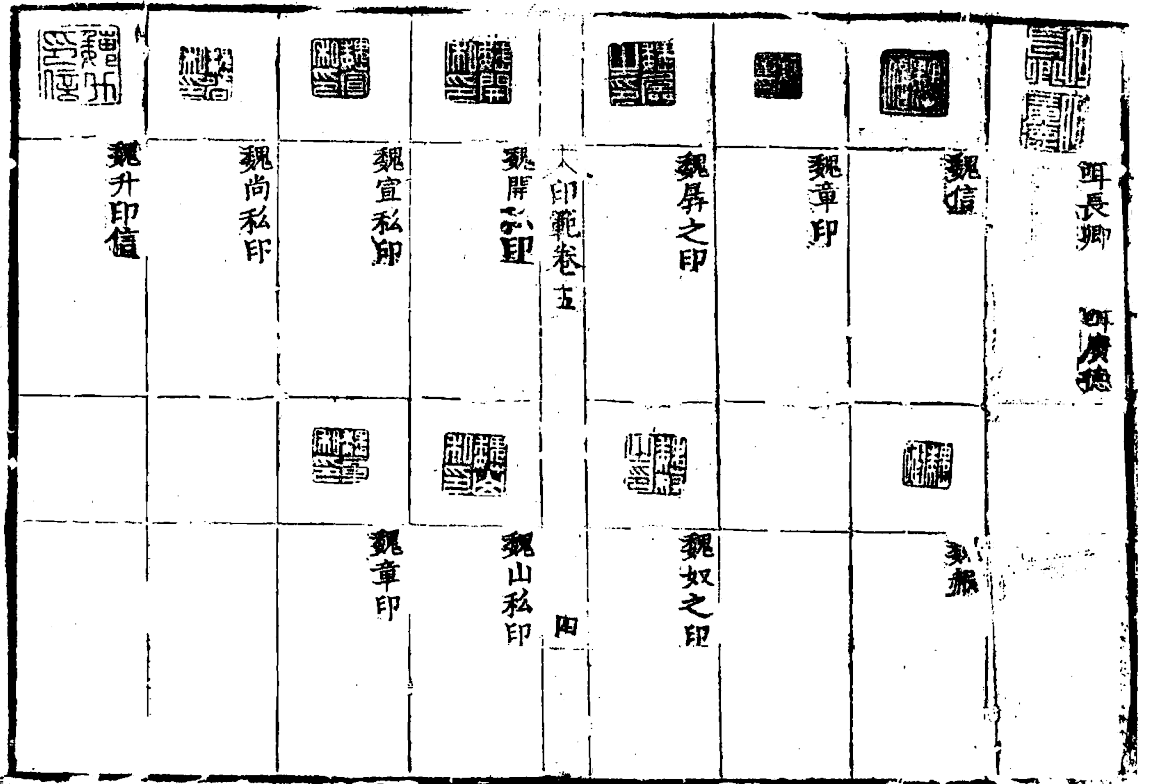 㖞長卿
㖞廣德
魏信
魏赧
魏章印
魏之印
魏奴之印
大印範卷五
四
魏開私印
魏山私印
魏宣私印
魏章印
魏尚私印
魏升印信